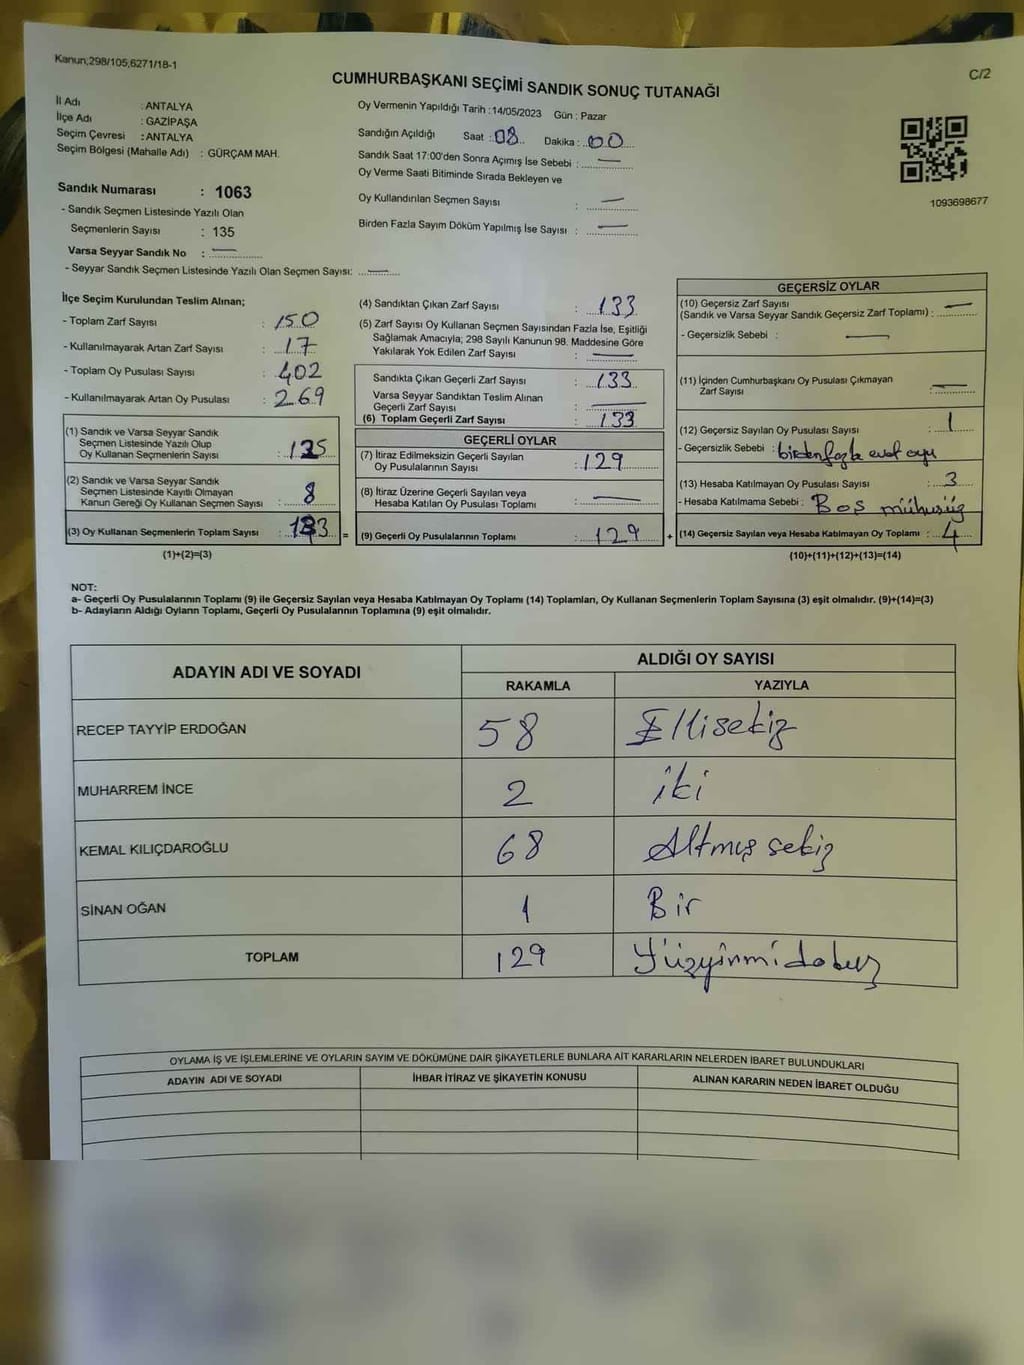 Kanun;298/105,6271/18-1
C/2
CUMHURBAŞKANI SEÇİMİ SANDIK SONUÇ TUTANAĞI
İl Adı : ANTALYA
İlçe Adı : GAZİPAŞA
Seçim Çevresi : ANTALYA
Seçim Bölgesi (Mahalle Adı) : GÜRÇAM MAH.
Sandık Numarası : 1063
- Sandık Seçmen Listesinde Yazılı Olan
Seçmenlerin Sayısı : 135
Varsa Seyyar Sandık No : —
- Seyyar Sandık Seçmen Listesinde Yazılı Olan Seçmen Sayısı: —
Oy Vermenin Yapıldığı Tarih : 14/05/2023 Gün : Pazar
Sandığın Açıldığı Saat : 08 Dakika : 00
Sandık Saat 17:00'den Sonra Açımış İse Sebebi : —
Oy Verme Saati Bitiminde Sırada Bekleyen ve
Oy Kullandırılan Seçmen Sayısı : —
Birden Fazla Sayım Döküm Yapılmış İse Sayısı : —
1093698677
İlçe Seçim Kurulundan Teslim Alınan;
- Toplam Zarf Sayısı : 150
- Kullanılmayarak Artan Zarf Sayısı : 17
- Toplam Oy Pusulası Sayısı : 402
- Kullanılmayarak Artan Oy Pusulası : 269
(1) Sandık ve Varsa Seyyar Sandık
Seçmen Listesinde Yazılı Olup
Oy Kullanan Seçmenlerin Sayısı : 125
(2) Sandık ve Varsa Seyyar Sandık
Seçmen Listesinde Kayıtlı Olmayan
Kanun Gereği Oy Kullanan Seçmen Sayısı : 8
(3) Oy Kullanan Seçmenlerin Toplam Sayısı : 133 =
(1)+(2)=(3)
(4) Sandıktan Çıkan Zarf Sayısı : 133
(5) Zarf Sayısı Oy Kullanan Seçmen Sayısından Fazla İse, Eşitliği
Sağlamak Amacıyla; 298 Sayılı Kanunun 98. Maddesine Göre
Yakılarak Yok Edilen Zarf Sayısı : —
Sandıkta Çıkan Geçerli Zarf Sayısı : 133
Varsa Seyyar Sandıktan Teslim Alınan
Geçerli Zarf Sayısı : —
(6) Toplam Geçerli Zarf Sayısı : 133
GEÇERLİ OYLAR
(7) İtiraz Edilmeksizin Geçerli Sayılan
Oy Pusulalarının Sayısı : 129
(8) İtiraz Üzerine Geçerli Sayılan veya
Hesaba Katılan Oy Pusulası Toplamı : —
(9) Geçerli Oy Pusulalarının Toplamı : 129 +
GEÇERSİZ OYLAR
(10) Geçersiz Zarf Sayısı
(Sandık ve Varsa Seyyar Sandık Geçersiz Zarf Toplamı) : —
- Geçersizlik Sebebi : —
(11) İçinden Cumhurbaşkanı Oy Pusulası Çıkmayan
Zarf Sayısı : —
(12) Geçersiz Sayılan Oy Pusulası Sayısı : 1
- Geçersizlik Sebebi : birden fazla evet oyu
(13) Hesaba Katılmayan Oy Pusulası Sayısı : 3
- Hesaba Katılmama Sebebi : Boş mühürsüz
(14) Geçersiz Sayılan veya Hesaba Katılmayan Oy Toplamı : 4
(10)+(11)+(12)+(13)=(14)
NOT:
a- Geçerli Oy Pusulalarının Toplamı (9) ile Geçersiz Sayılan veya Hesaba Katılmayan Oy Toplamı (14) Toplamları, Oy Kullanan Seçmenlerin Toplam Sayısına (3) eşit olmalıdır. (9)+(14)=(3)
b- Adayların Aldığı Oyların Toplamı, Geçerli Oy Pusulalarının Toplamına (9) eşit olmalıdır.
ADAYIN ADI VE SOYADI ALDIĞI OY SAYISI
RAKAMLA YAZIYLA
RECEP TAYYİP ERDOĞAN 58 Ellisekiz
MUHARREM İNCE 2 iki
KEMAL KILIÇDAROĞLU 68 Altmış sekiz
SİNAN OĞAN 1 Bir
TOPLAM 129 Yüzyirmidokuz
OYLAMA İŞ VE İŞLEMLERİNE VE OYLARIN SAYIM VE DÖKÜMÜNE DAİR ŞİKAYETLERLE BUNLARA AİT KARARLARIN NELERDEN İBARET BULUNDUKLARI
ADAYIN ADI VE SOYADI İHBAR İTİRAZ VE ŞİKAYETİN KONUSU ALINAN KARARIN NEDEN İBARET OLDUĞU